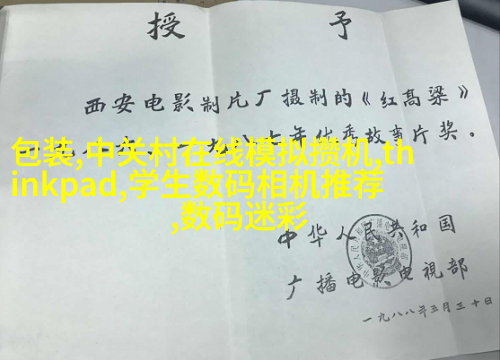 授 予
西安电影制片厂摄制的《红高粱》
一九八七年优秀故事片奖。
包装,中关村在线模拟攒机,th
inkpad,学生数码相机推荐
,数码迷彩
中华人民共和国
广播电影电视部
一九八八年三月三十日